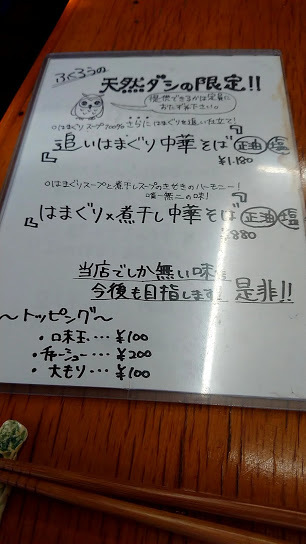 ふくろうの
天然ダシの限定!!
提供できるかは店員に
おたずね下さい!!
○はまぐりスープ100%さらにはまぐりを追い仕立て!
『追いはまぐり中華そば』正油 塩
¥1.180
○はまぐりスープと煮干しスープのきせきのハーモニー!
唯一無二の味!
『はまぐり×煮干し中華そば』正油 塩
¥880
当店でしか無い味を
今後も目指します! 是非!!
～トッピング～
・口味玉…¥100
・チャーシュー…¥200
・大もり…¥100